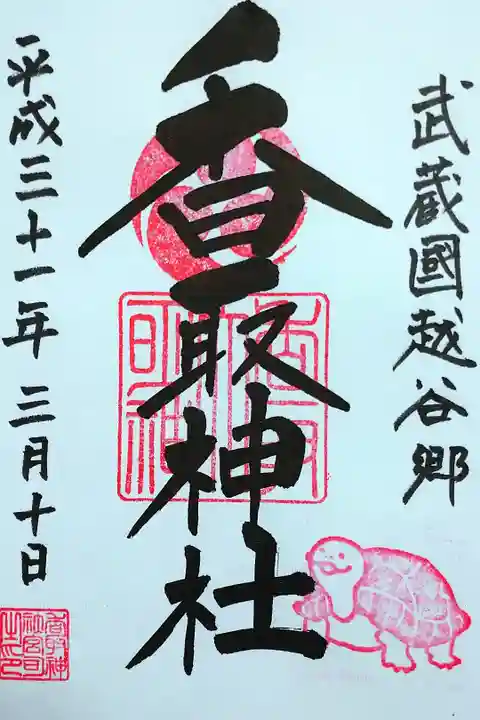 武蔵國越谷郷
香取神社
平成三十一年三月十日